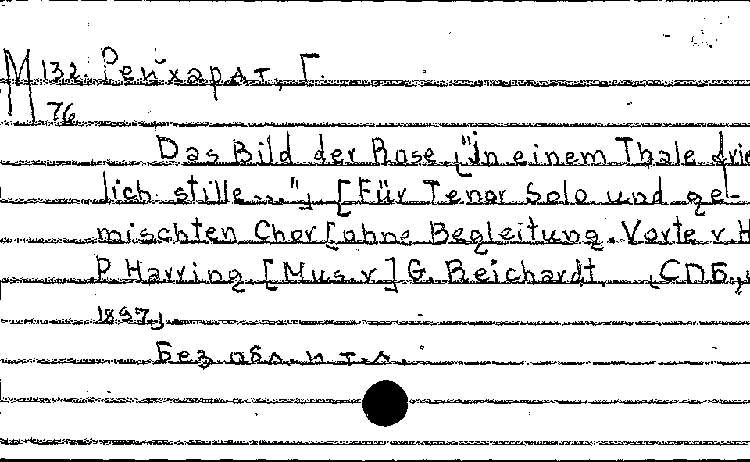 М 132 Рейхардт, Г.
76
Das Bild der Rose „"In einem Thale frie
lich stille..."„ [Für Tenor Solo und ge-
mischten Chor [ohne Begleitung. Vorte v. H
P. Harring. [Mus. v.] G. Reichardt. „СПБ.,
1897„
Без обл. и т.л.